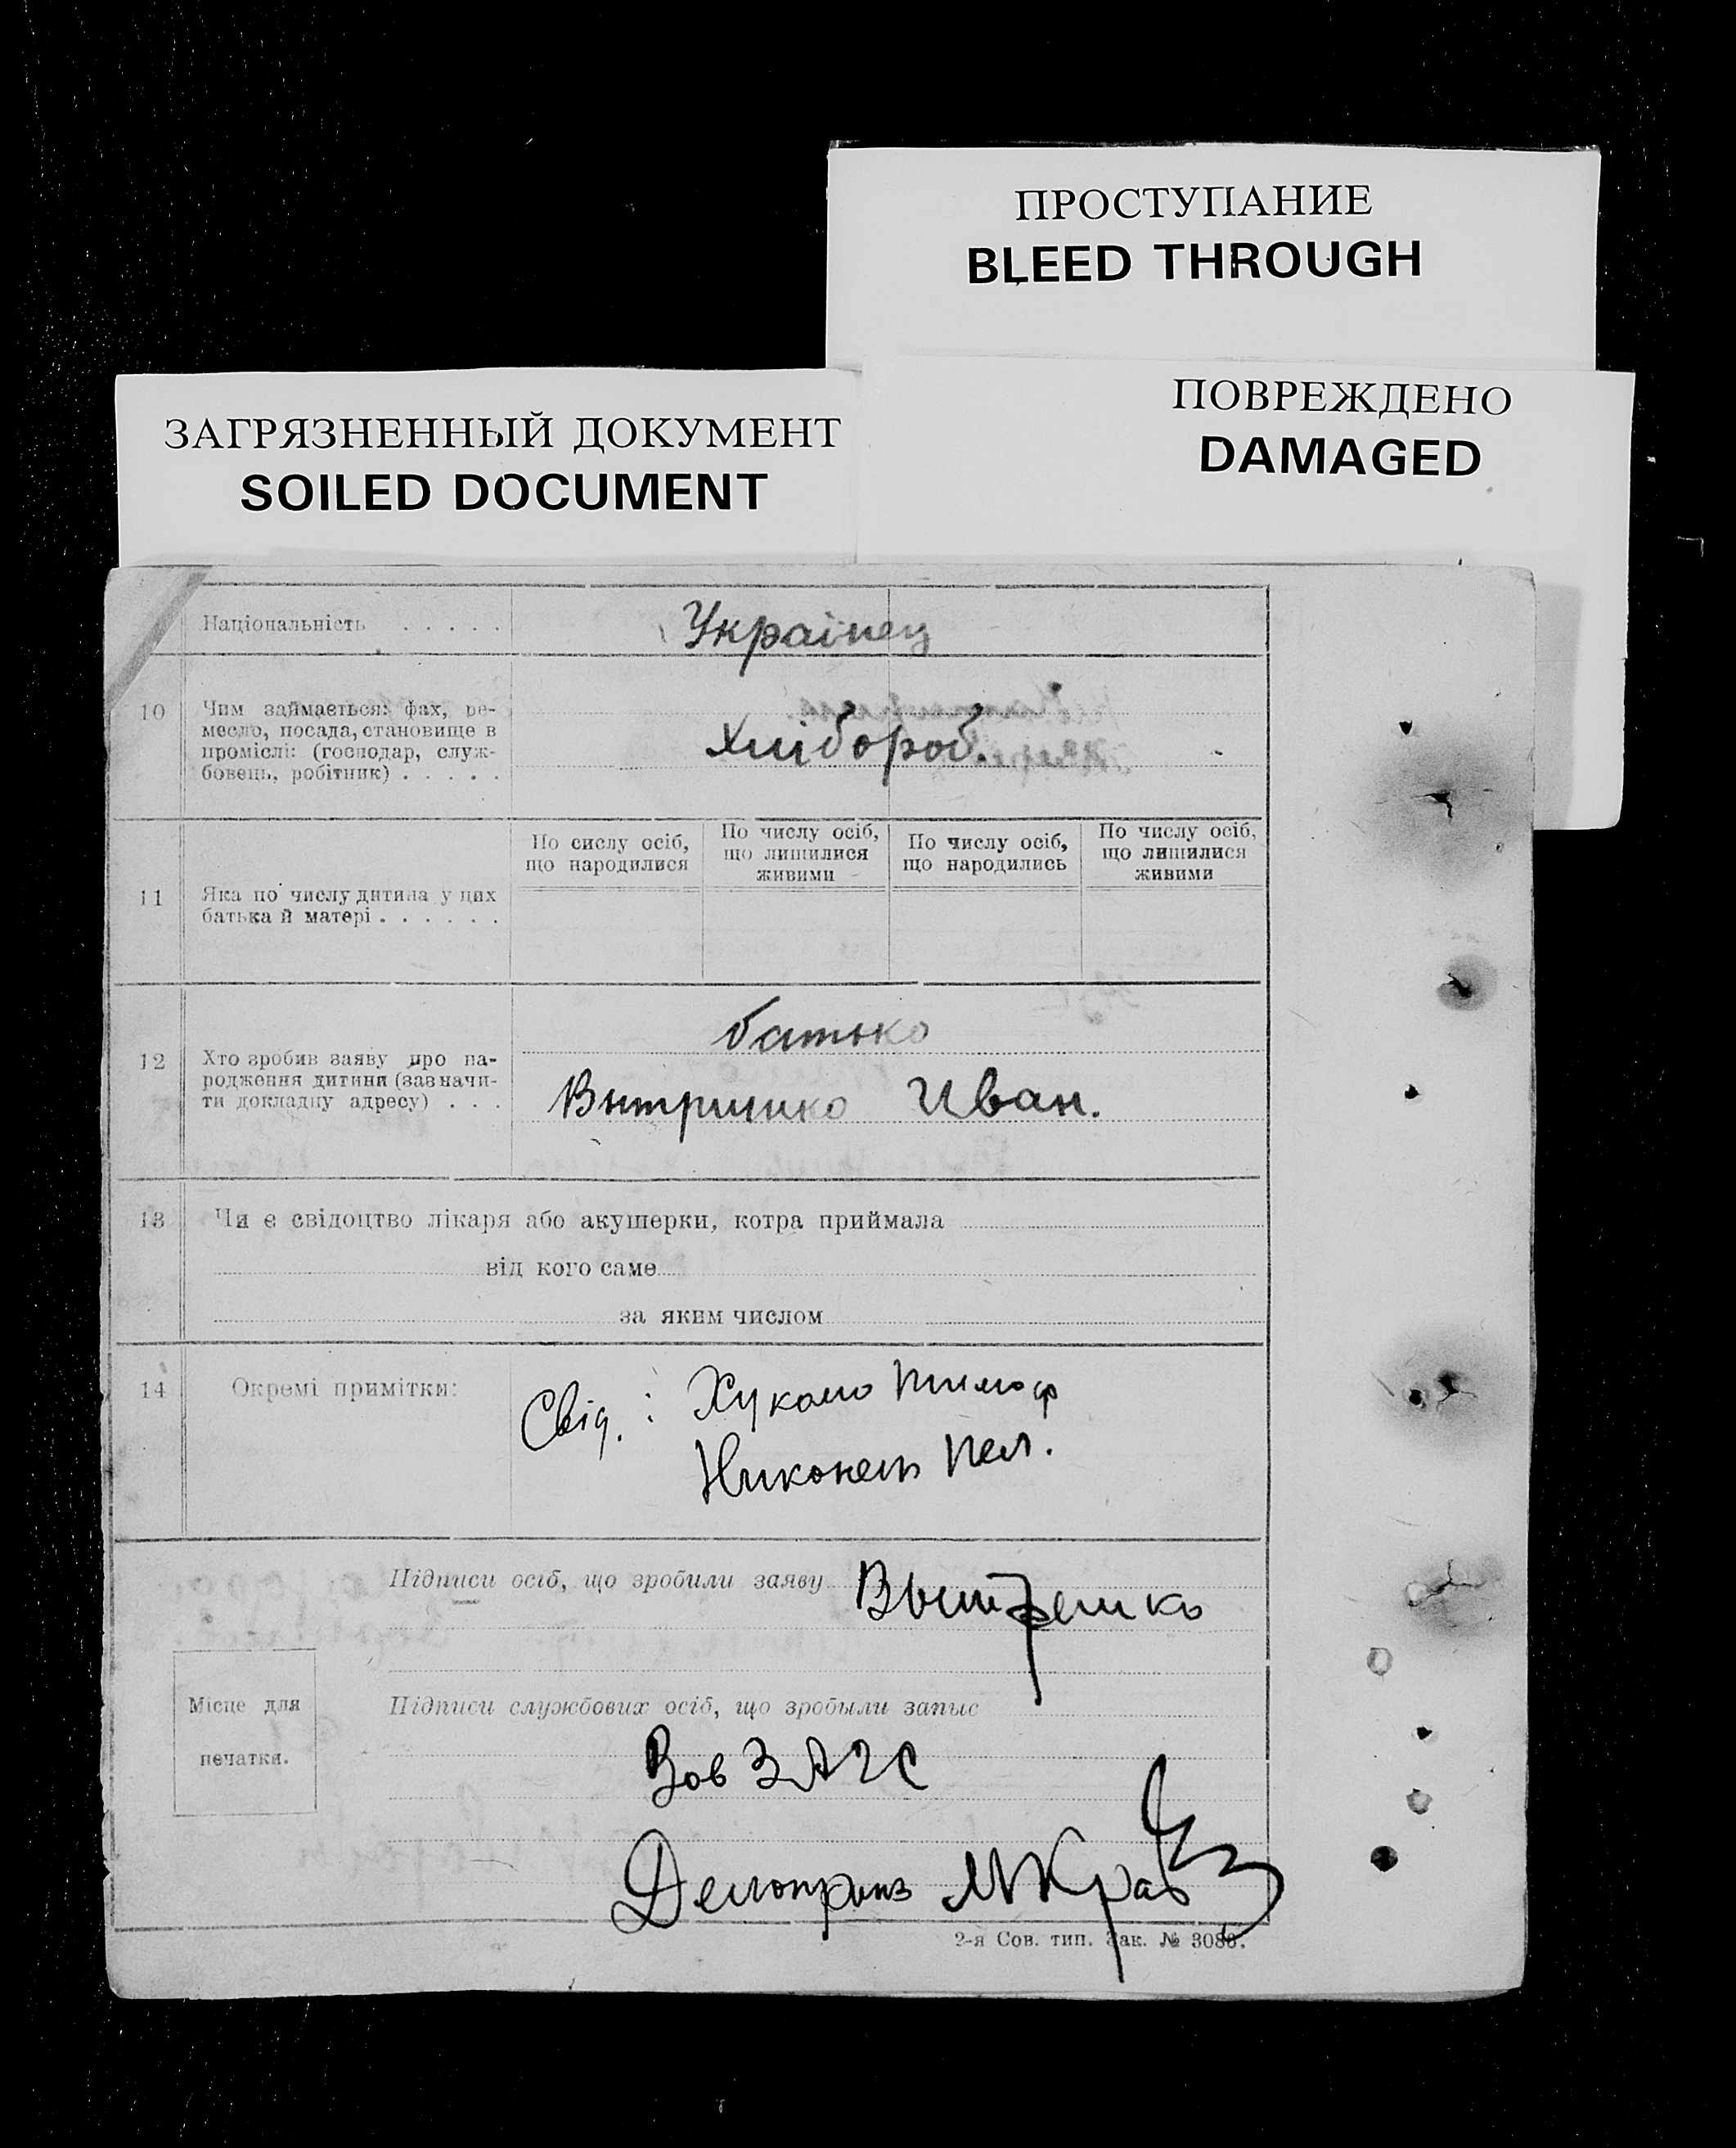 ПРОСТУПАНИЕ
BLEED THROUGH
ПОВРЕЖДЕНО
DAMAGED
ЗАГРЯЗНЕННЫЙ ДОКУМЕНТ
SOILED DOCUMENT
Національність . . . . .
Українец
10
Чим займається: фах, ре-
месло, посада, становище в
промислі: (господар, служ-
бовець, робітник) . . . . .
Хлібороб.
11
Яка по числу дитина у цих
батька й матері . . . . . .
По сислу осіб,
що народилися
По числу осіб,
що лишилися
живими
По числу осіб,
що народились
По числу осіб,
що лишилися
живими
12
Хто зробив заяву про на-
родження дитини (зазначи-
ти докладну адресу) . . .
батько
Иван.
13
Чи є свідоцтво лікаря або акушерки, котра приймала
від кого саме
за яким числом
14
Окремі примітки:
Свід. : Тимоф
Пел.
Підписи осіб, що зробили заяву
Вытрешко
Місце для
печатки.
Підписи службових осіб, що зробыли запыс
Зав ЗАГС
2-я Сов. тип. Зак. № 3080.